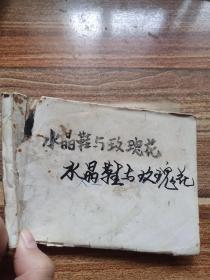 水晶鞋与玫瑰花
水晶鞋与玫瑰花